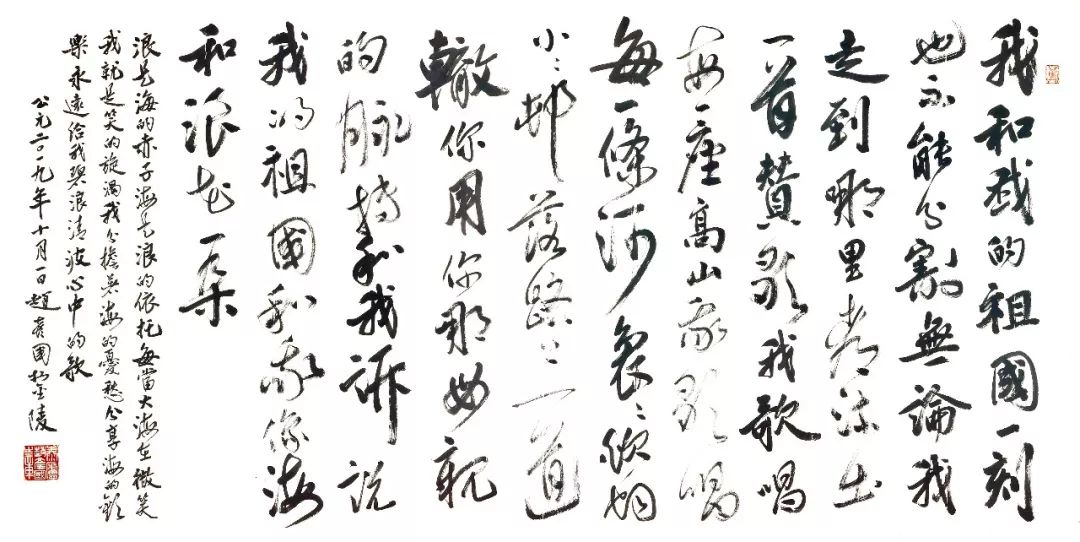 我和我的祖國一刻
也不能分割無論我
走到哪里都流出
一首贊歌我歌唱
每一座高山我歌唱
每一條河裊〻炊烟
小〻村落路上一道
轍你用你那母親
的脉搏和我訴說
我的祖國和我像海
和浪花一朵
浪是海的赤子海是浪的依托每當大海在微笑
我就是笑的旋渦我分擔着海的憂愁分享海的歡
樂永遠給我碧浪清波心中的歌
公元二〇一九年十月一日趙彥國於金陵